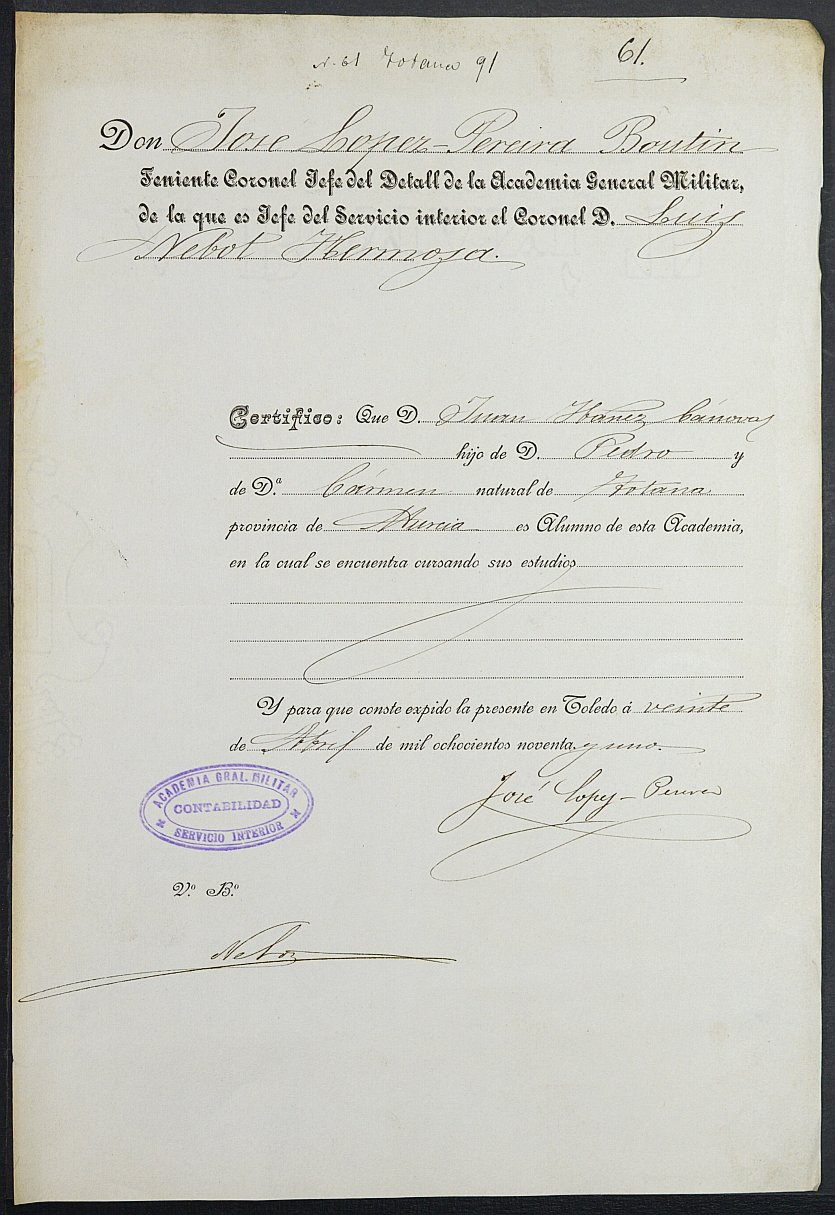 N. 61 Totana 91
61.
Don José Lopez-Pereira Boutin
Teniente Coronel Jefe del Detall de la Academia General Militar,
de la que es Jefe del Servicio interior el Coronel D. Luis
Nebot Hermosa.
Certifico: Que D. Juan Ibañez Cánovas
hijo de D. Pedro y
de D.ª Cármen natural de Totana
provincia de Murcia es Alumno de esta Academia,
en la cual se encuentra cursando sus estudios
Y para que conste expido la presente en Toledo á veinte
de Abril de mil ochocientos noventa y uno.
José Lopez-Pereira
ACADEMIA GRAL. MILITAR
CONTABILIDAD
SERVICIO INTERIOR
V.º B.º
Nebot